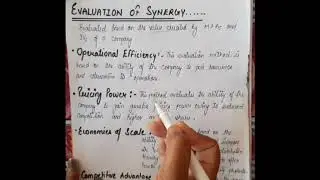 EVALUATION OF SYNERGY......
Evaluated based on the value created by M&As and
of a company
• Operational Efficiency: This evaluation method is
based on the ability of the company to post
and to operations.
• Pricing Power:- This method evaluates the ability of the
company to gain pricing power owing to reduced
competition and higher market share.
• Economies of Scale based on the
Competitive Advantage